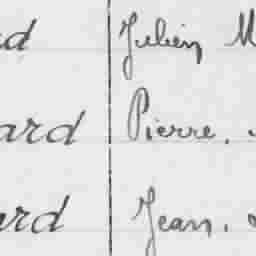 d Julien M
ard Pierre,
ard Jean,